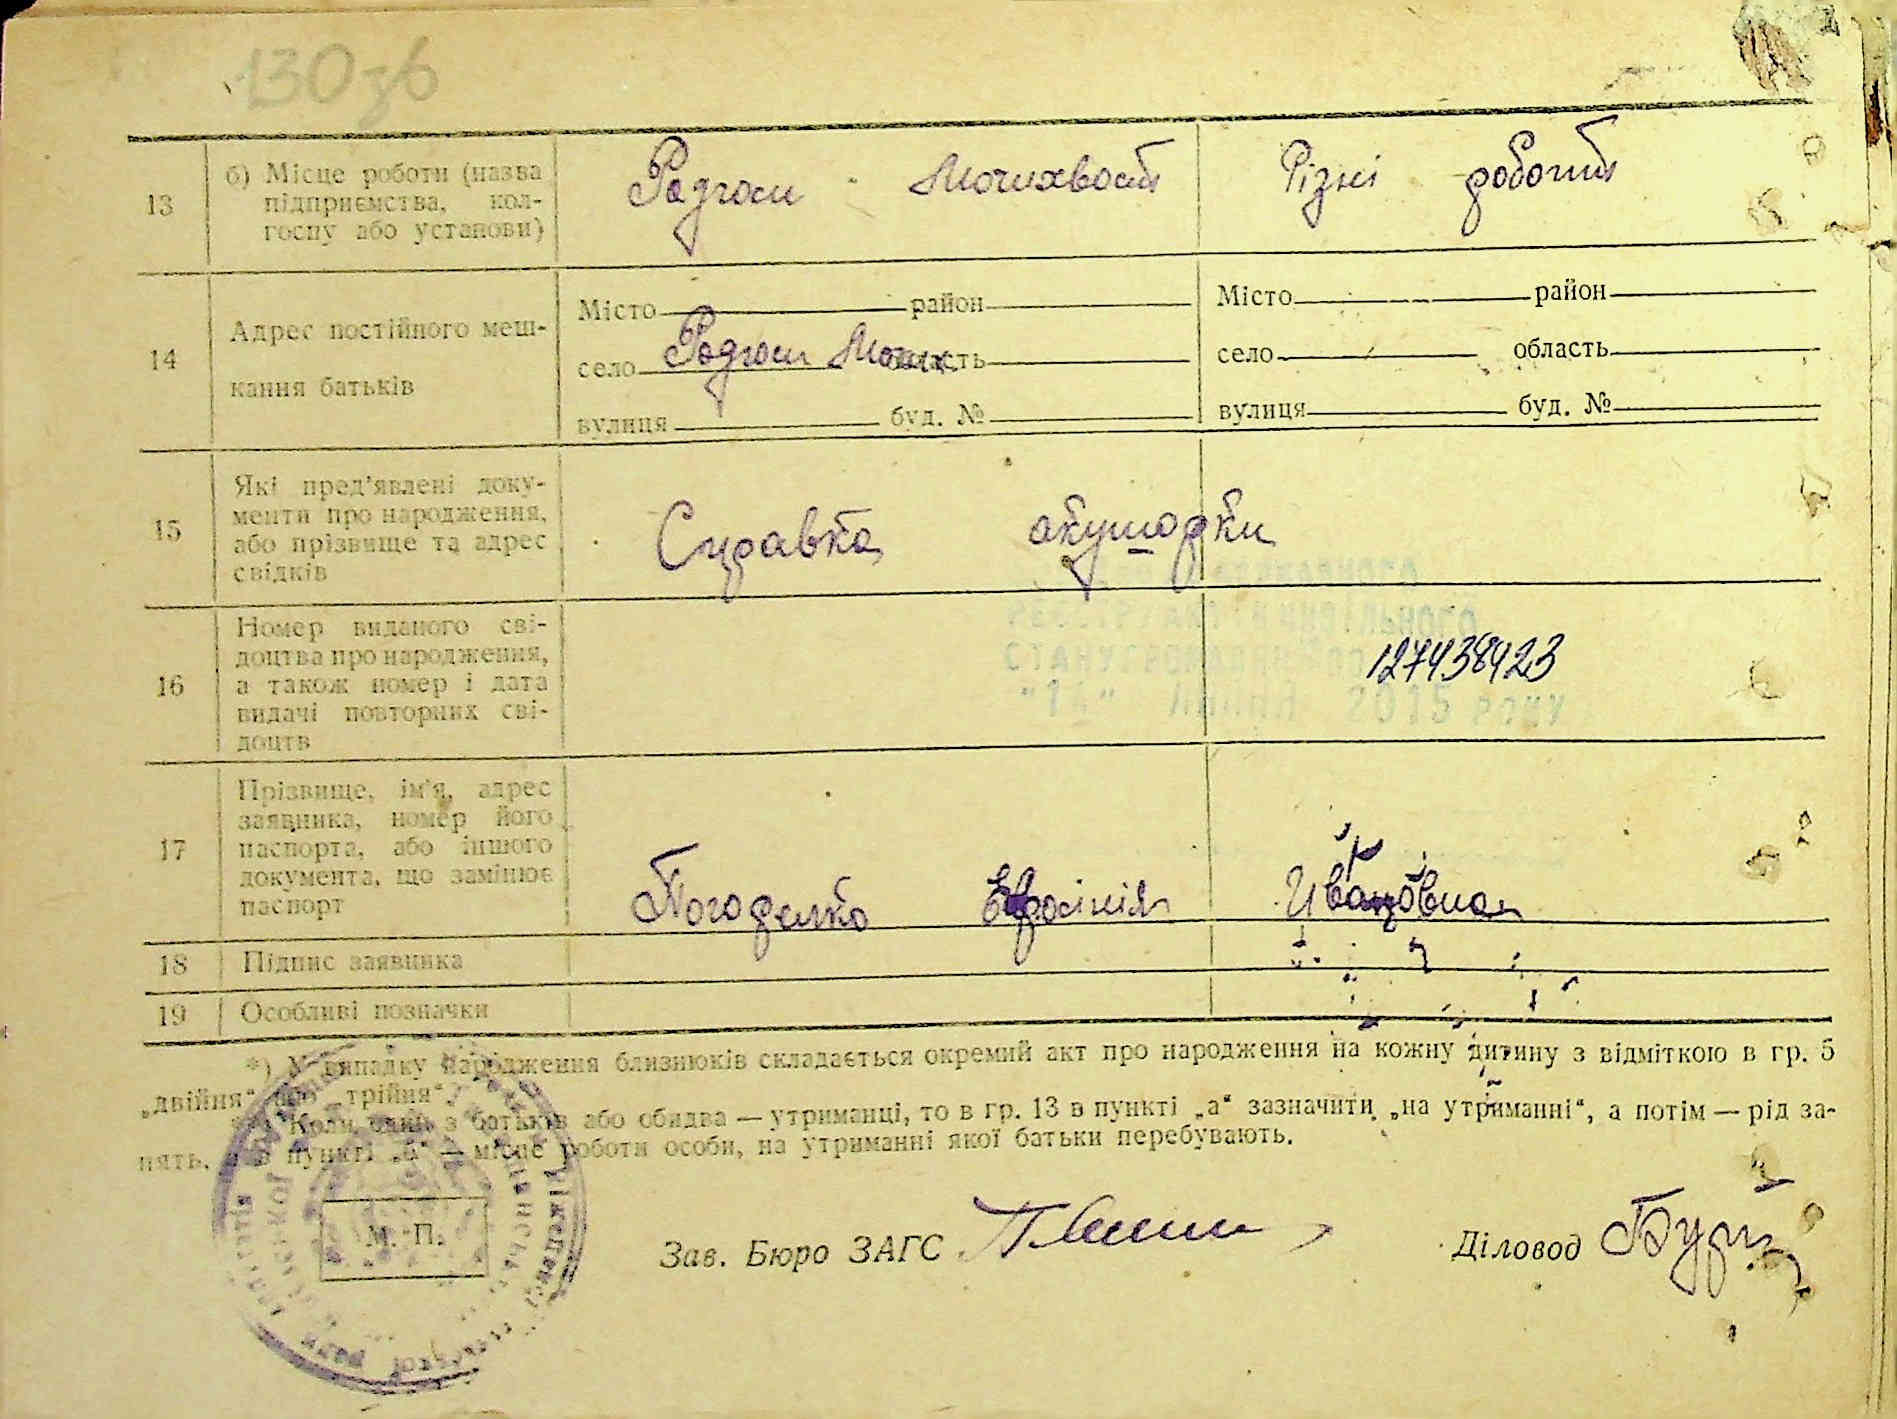 130зв
13
б) Місце роботи (назва
підприємства, кол-
госпу або установи)
Радгосп Мочихвост
Різні роботи
14
Адрес постійного меш-
кання батьків
Місто район
село Радгосп Мочих. область
вулиця буд. №
Місто район
село область
вулиця буд. №
15
Які пред'явлені доку-
менти про народження,
або прізвище та адрес
свідків
Справка акушорки
16
Номер виданого сві-
доцтва про народження,
а також номер і дата
видачі повторних сві-
доцтв
державного
цивільного
"14" липня 2015 року
127438423
17
Прізвище, ім'я, адрес
заявника, номер його
паспорта, або іншого
документа, що замінює
паспорт
Погорелко Ефросінія Ивановна
18
Підпис заявника
19
Особливі позначки
*) У випадку народження близнюків складається окремий акт про народження на кожну дитину з відміткою в гр. 5
„двійня“ або „трійня“.
Коли один з батьків або обидва — утриманці, то в гр. 13 в пункті „а“ зазначити „на утриманні“, а потім — рід за-
нять, а в пункті „б“ — місце роботи особи, на утриманні якої батьки перебувають.
М. П.
Зав. Бюро ЗАГС
Діловод